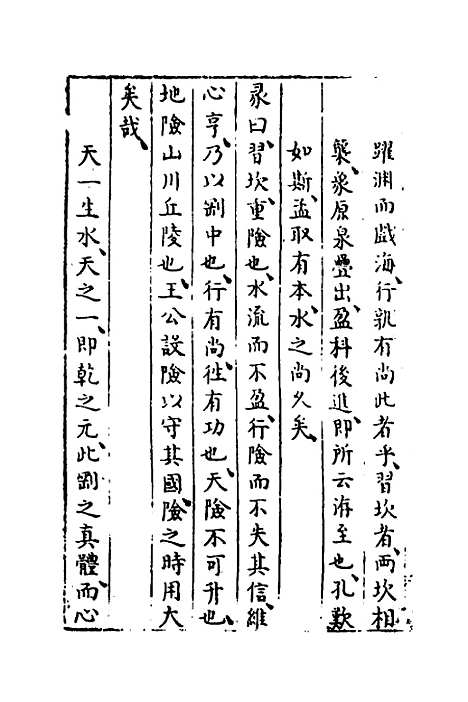 躍淵而戲海、行孰有尚此者乎、習坎者、兩坎相
襲、象原泉疊出、盈科後進、即所云洊至也、孔歎
如斯、孟取有本、水之尚久矣、
彖曰、習坎、重險也、水流而不盈、行險而不失其信、維
心亨、乃以剛中也、行有尚、徃有功也、天險不可升也、
地險山川丘陵也、王公設險以守其國、險之時用大
矣哉、
天一生水、天之一、即乾之元、此剛之真體、而心